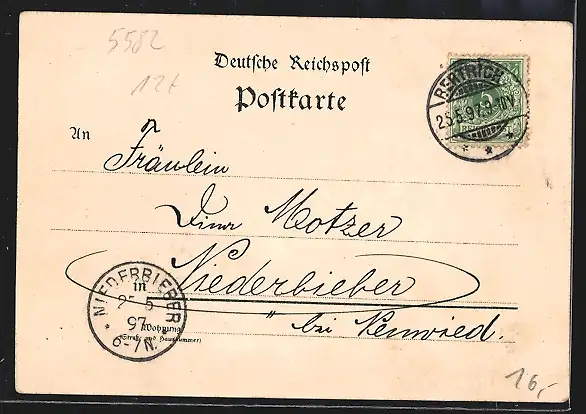 5582
12t
Deutsche Reichspost
Postkarte
BERTRICH
25.5.97.9-10V
* * *
An
Fräulein
Dina Motzer
Niederbieber
in
bei Neuwied.
Wohnung
(Straße und Hausnummer)
NIEDERBIEBER
25 5
97
6-7N.
16,-